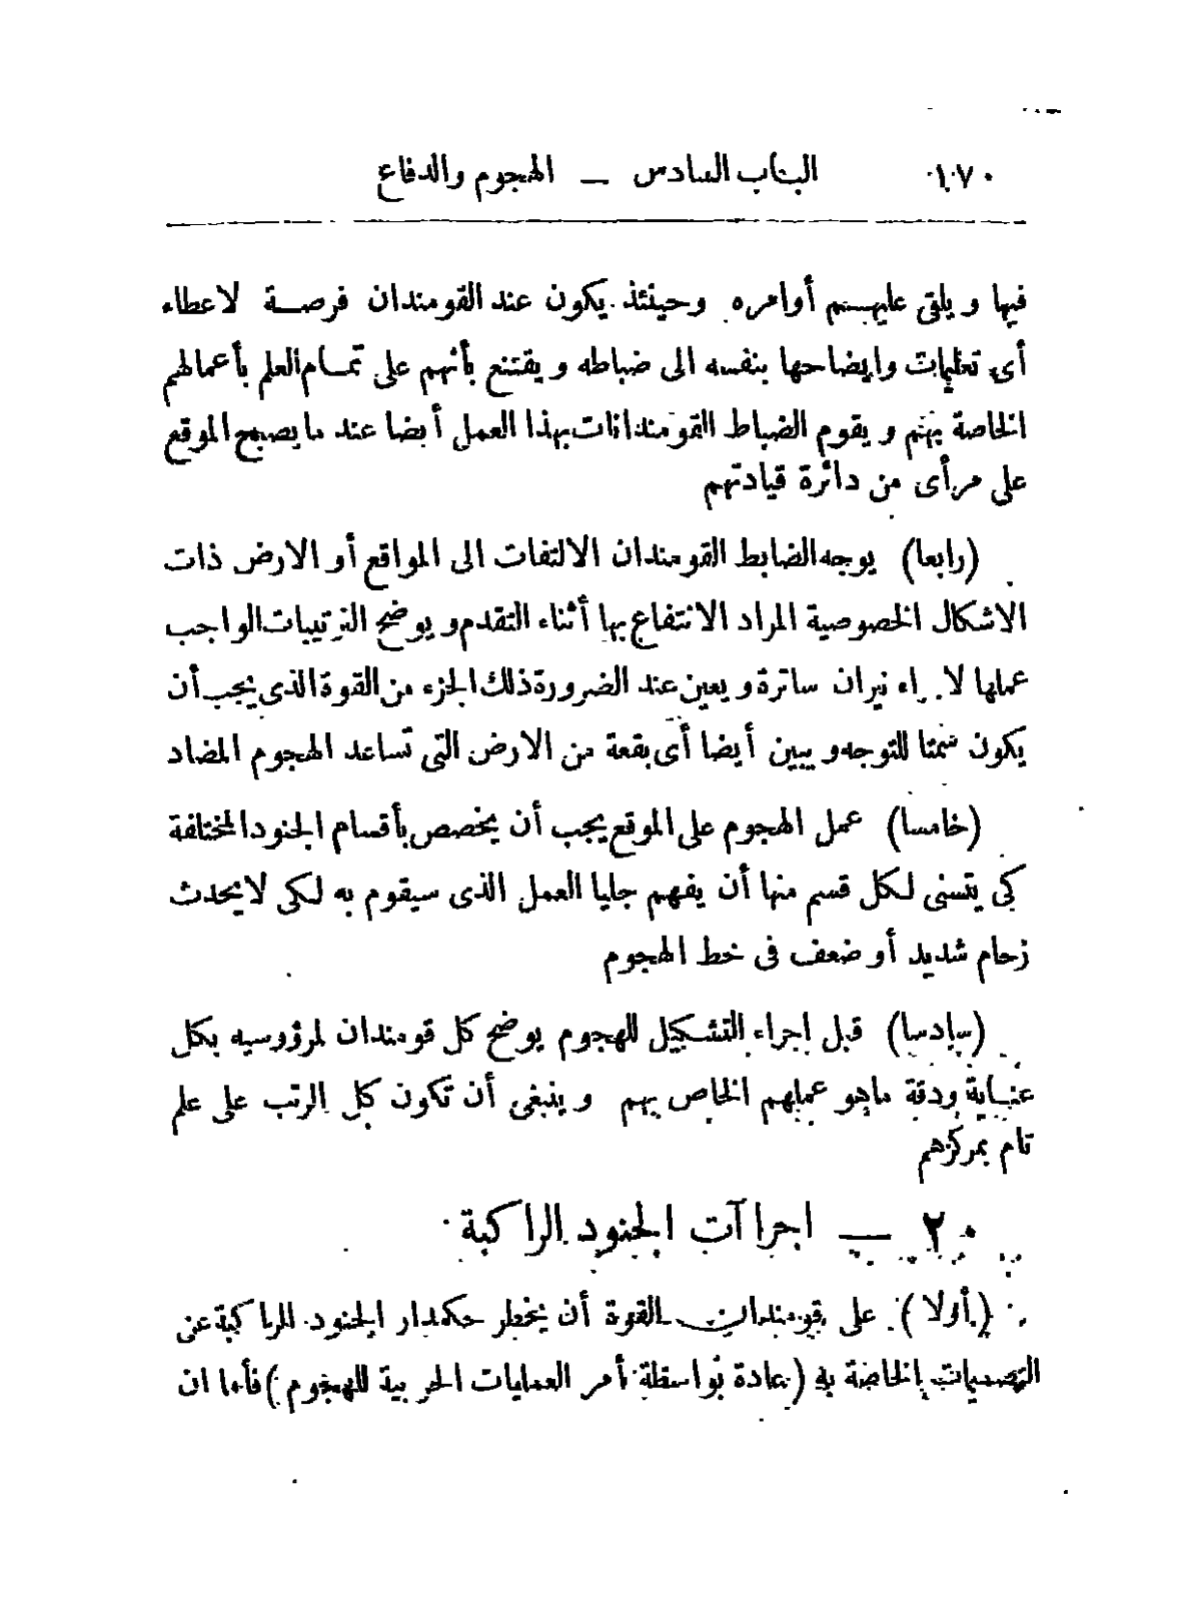 ١٧٠ الباب السادس — الهجوم والدفاع
فيها ويلقى عليهم أوامره وحينئذ يكون عند القومندان فرصة لاعطاء
أى تعليمات وايضاحها بنفسه الى ضباطه ويقتنع بأنهم على تمام العلم بأعمالهم
الخاصة بهم ويقوم الضباط القومندانات بهذا العمل أيضا عند ما يصبح الموقع
على مرأى من دائرة قيادتهم
(رابعا) يوجه الضابط القومندان الالتفات الى المواقع أو الارض ذات
الاشكال الخصوصية المراد الانتفاع بها أثناء التقدم ويوضح الترتيبات الواجب
عملها لاجراء نيران ساترة ويعين عند الضرورة ذلك الجزء من القوة الذى يجب أن
يكون سمتا للتوجه ويبين أيضا أى بقعة من الارض التى تساعد الهجوم المضاد
(خامسا) عمل الهجوم على الموقع يجب أن يخصص بأقسام الجنود المختلفة
كى يتسنى لكل قسم منها أن يفهم جليا العمل الذى سيقوم به لكى لا يحدث
زحام شديد أو ضعف فى خط الهجوم
(سادسا) قبل اجراء التشكيل للهجوم يوضح كل قومندان لمرؤوسيه بكل
عناية ودقة ماهو عملهم الخاص بهم وينبغى أن تكون كل الرتب على علم
تام بمركزهم
٢٠ — اجراآت الجنود الراكبة
(أولا) على قومندان القوة أن يخطر حكمدار الجنود الراكبة عن
التصميمات الخاصة به (عادة بواسطة أمر العمليات الحربية للهجوم) فأما ان